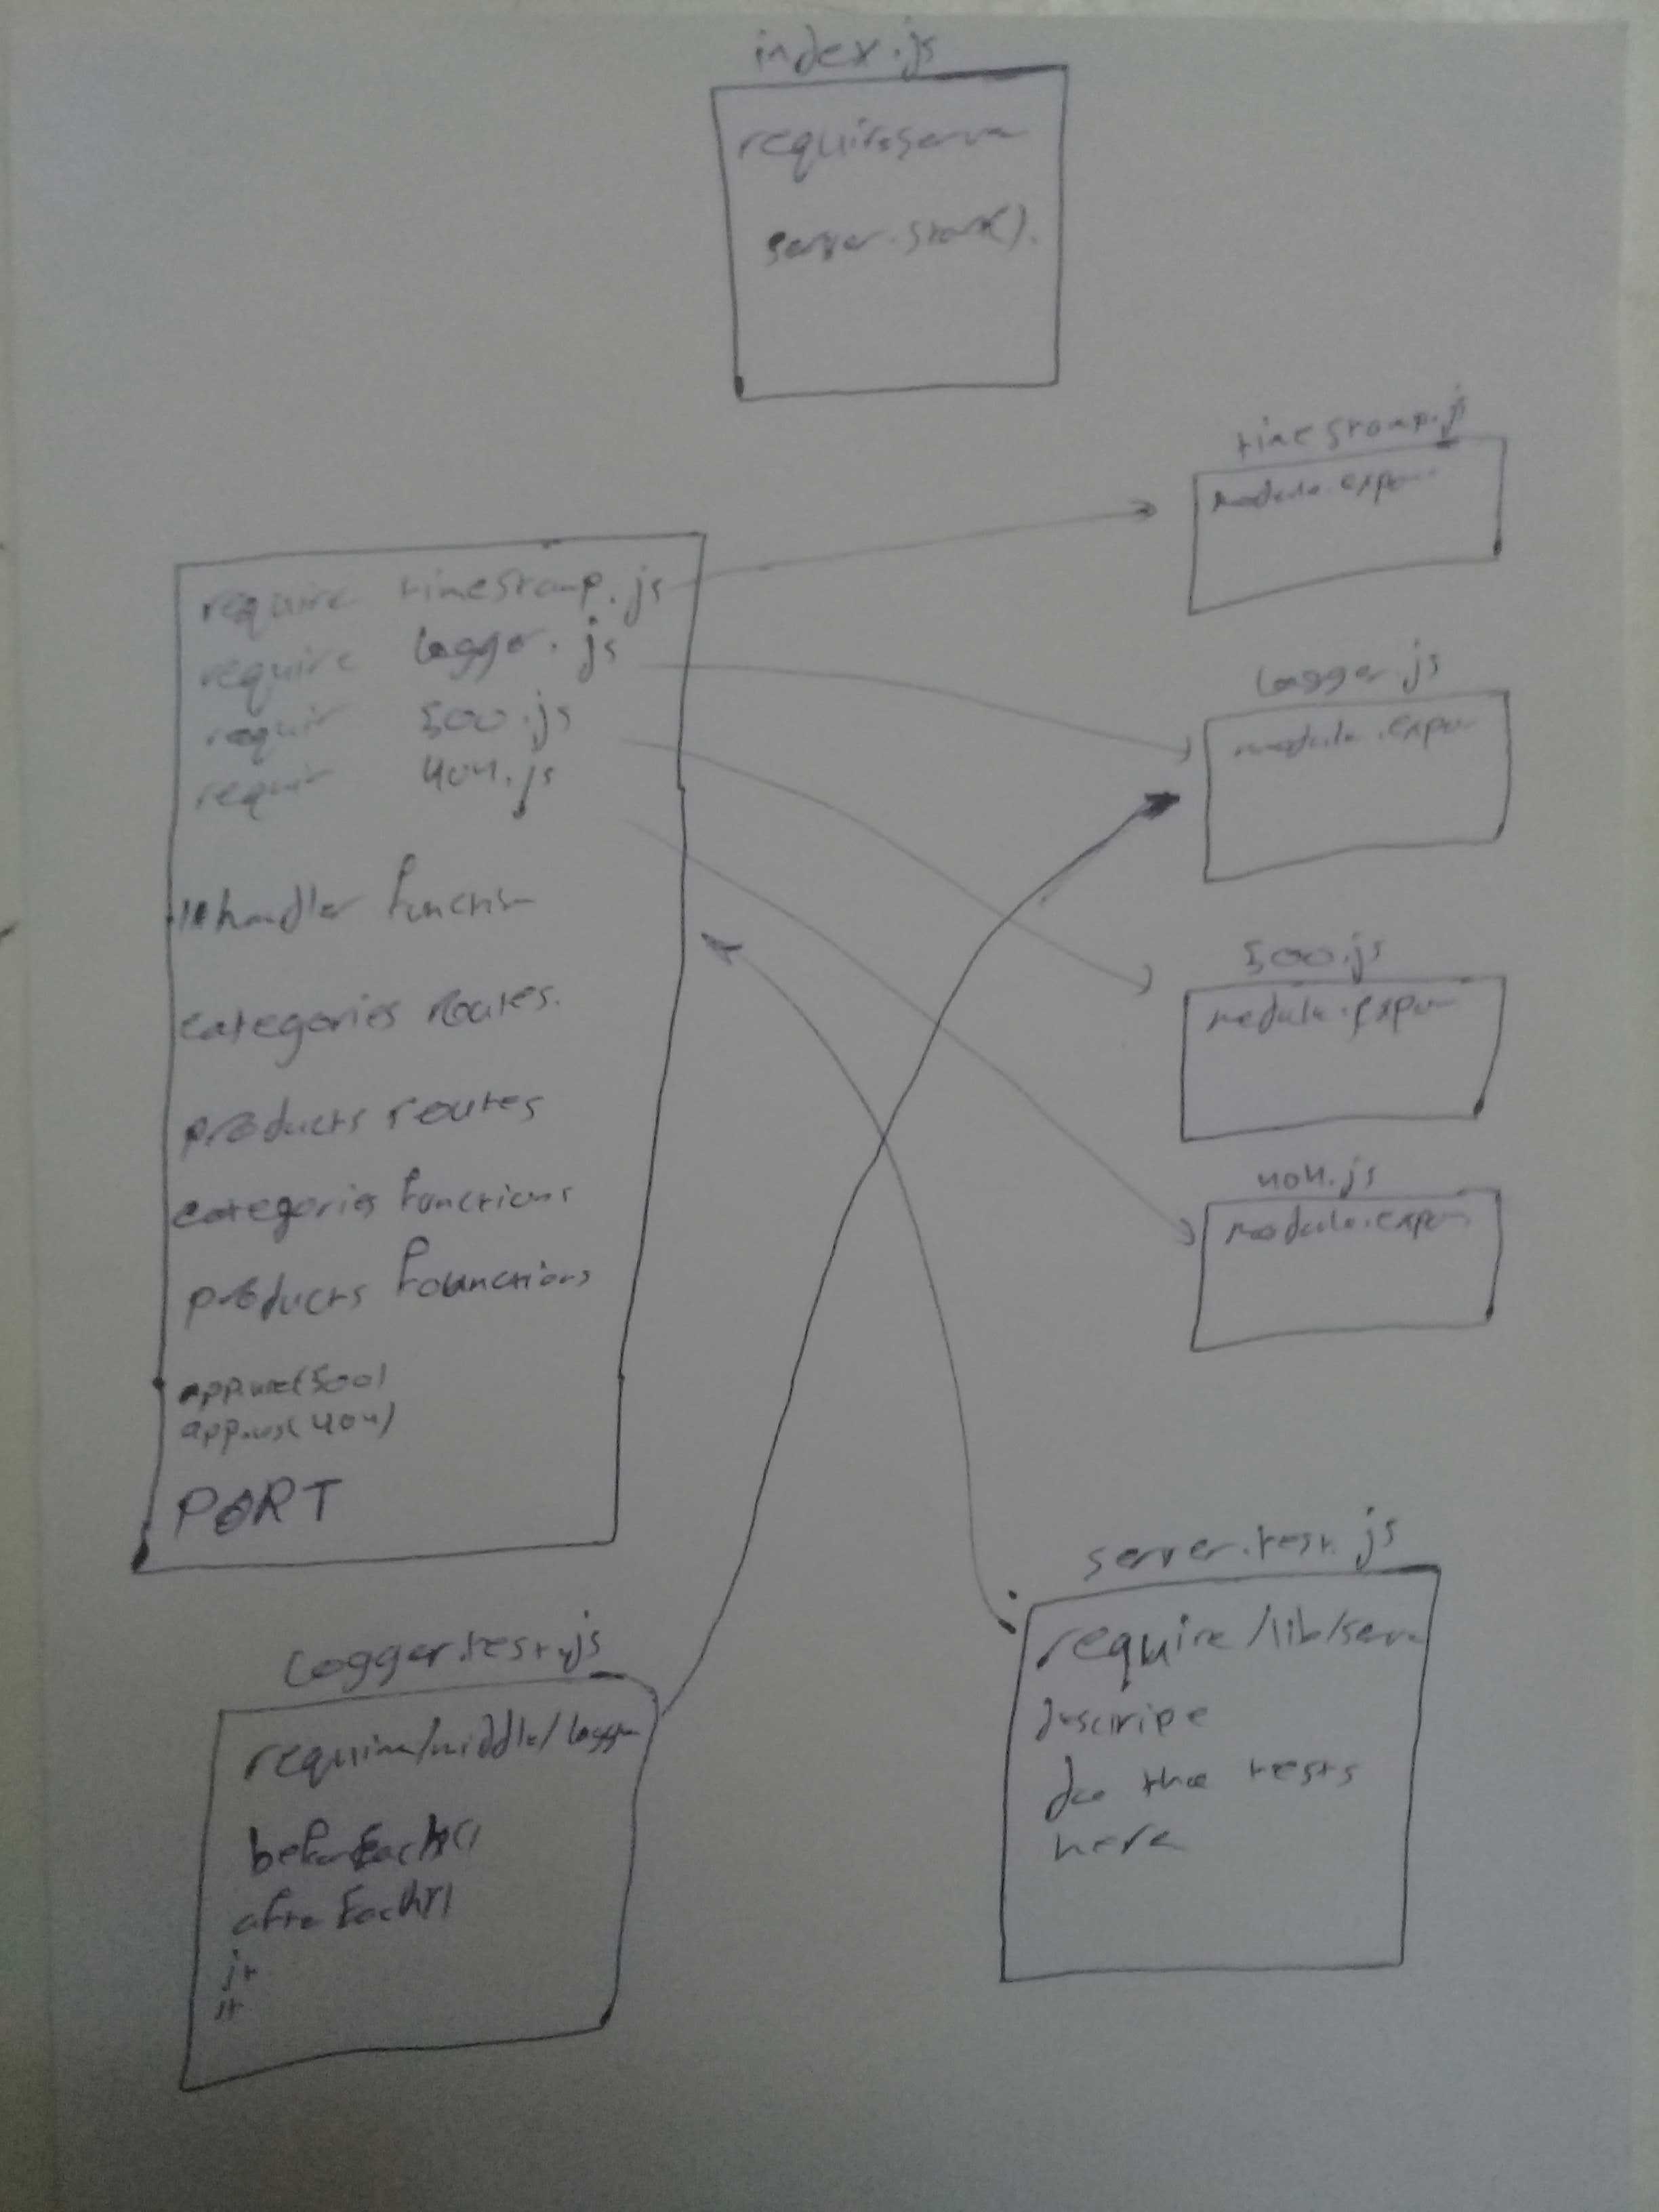 index.js
require serve
server.start().
timestamp.js
module.expor
require timestamp.js
require logger.js
requir 500.js
requir 404.js
handler function
categories routes.
products routes
categories functions
products founctions
app.use(500)
app.us(404)
PORT
logger.js
module.expor
500.js
module.expor
404.js
module.expor
logger.test.js
require/middle/logger
beforEach()
afterEach()
it
it
server.test.js
require /lib/serv
descripe
do the tests
here